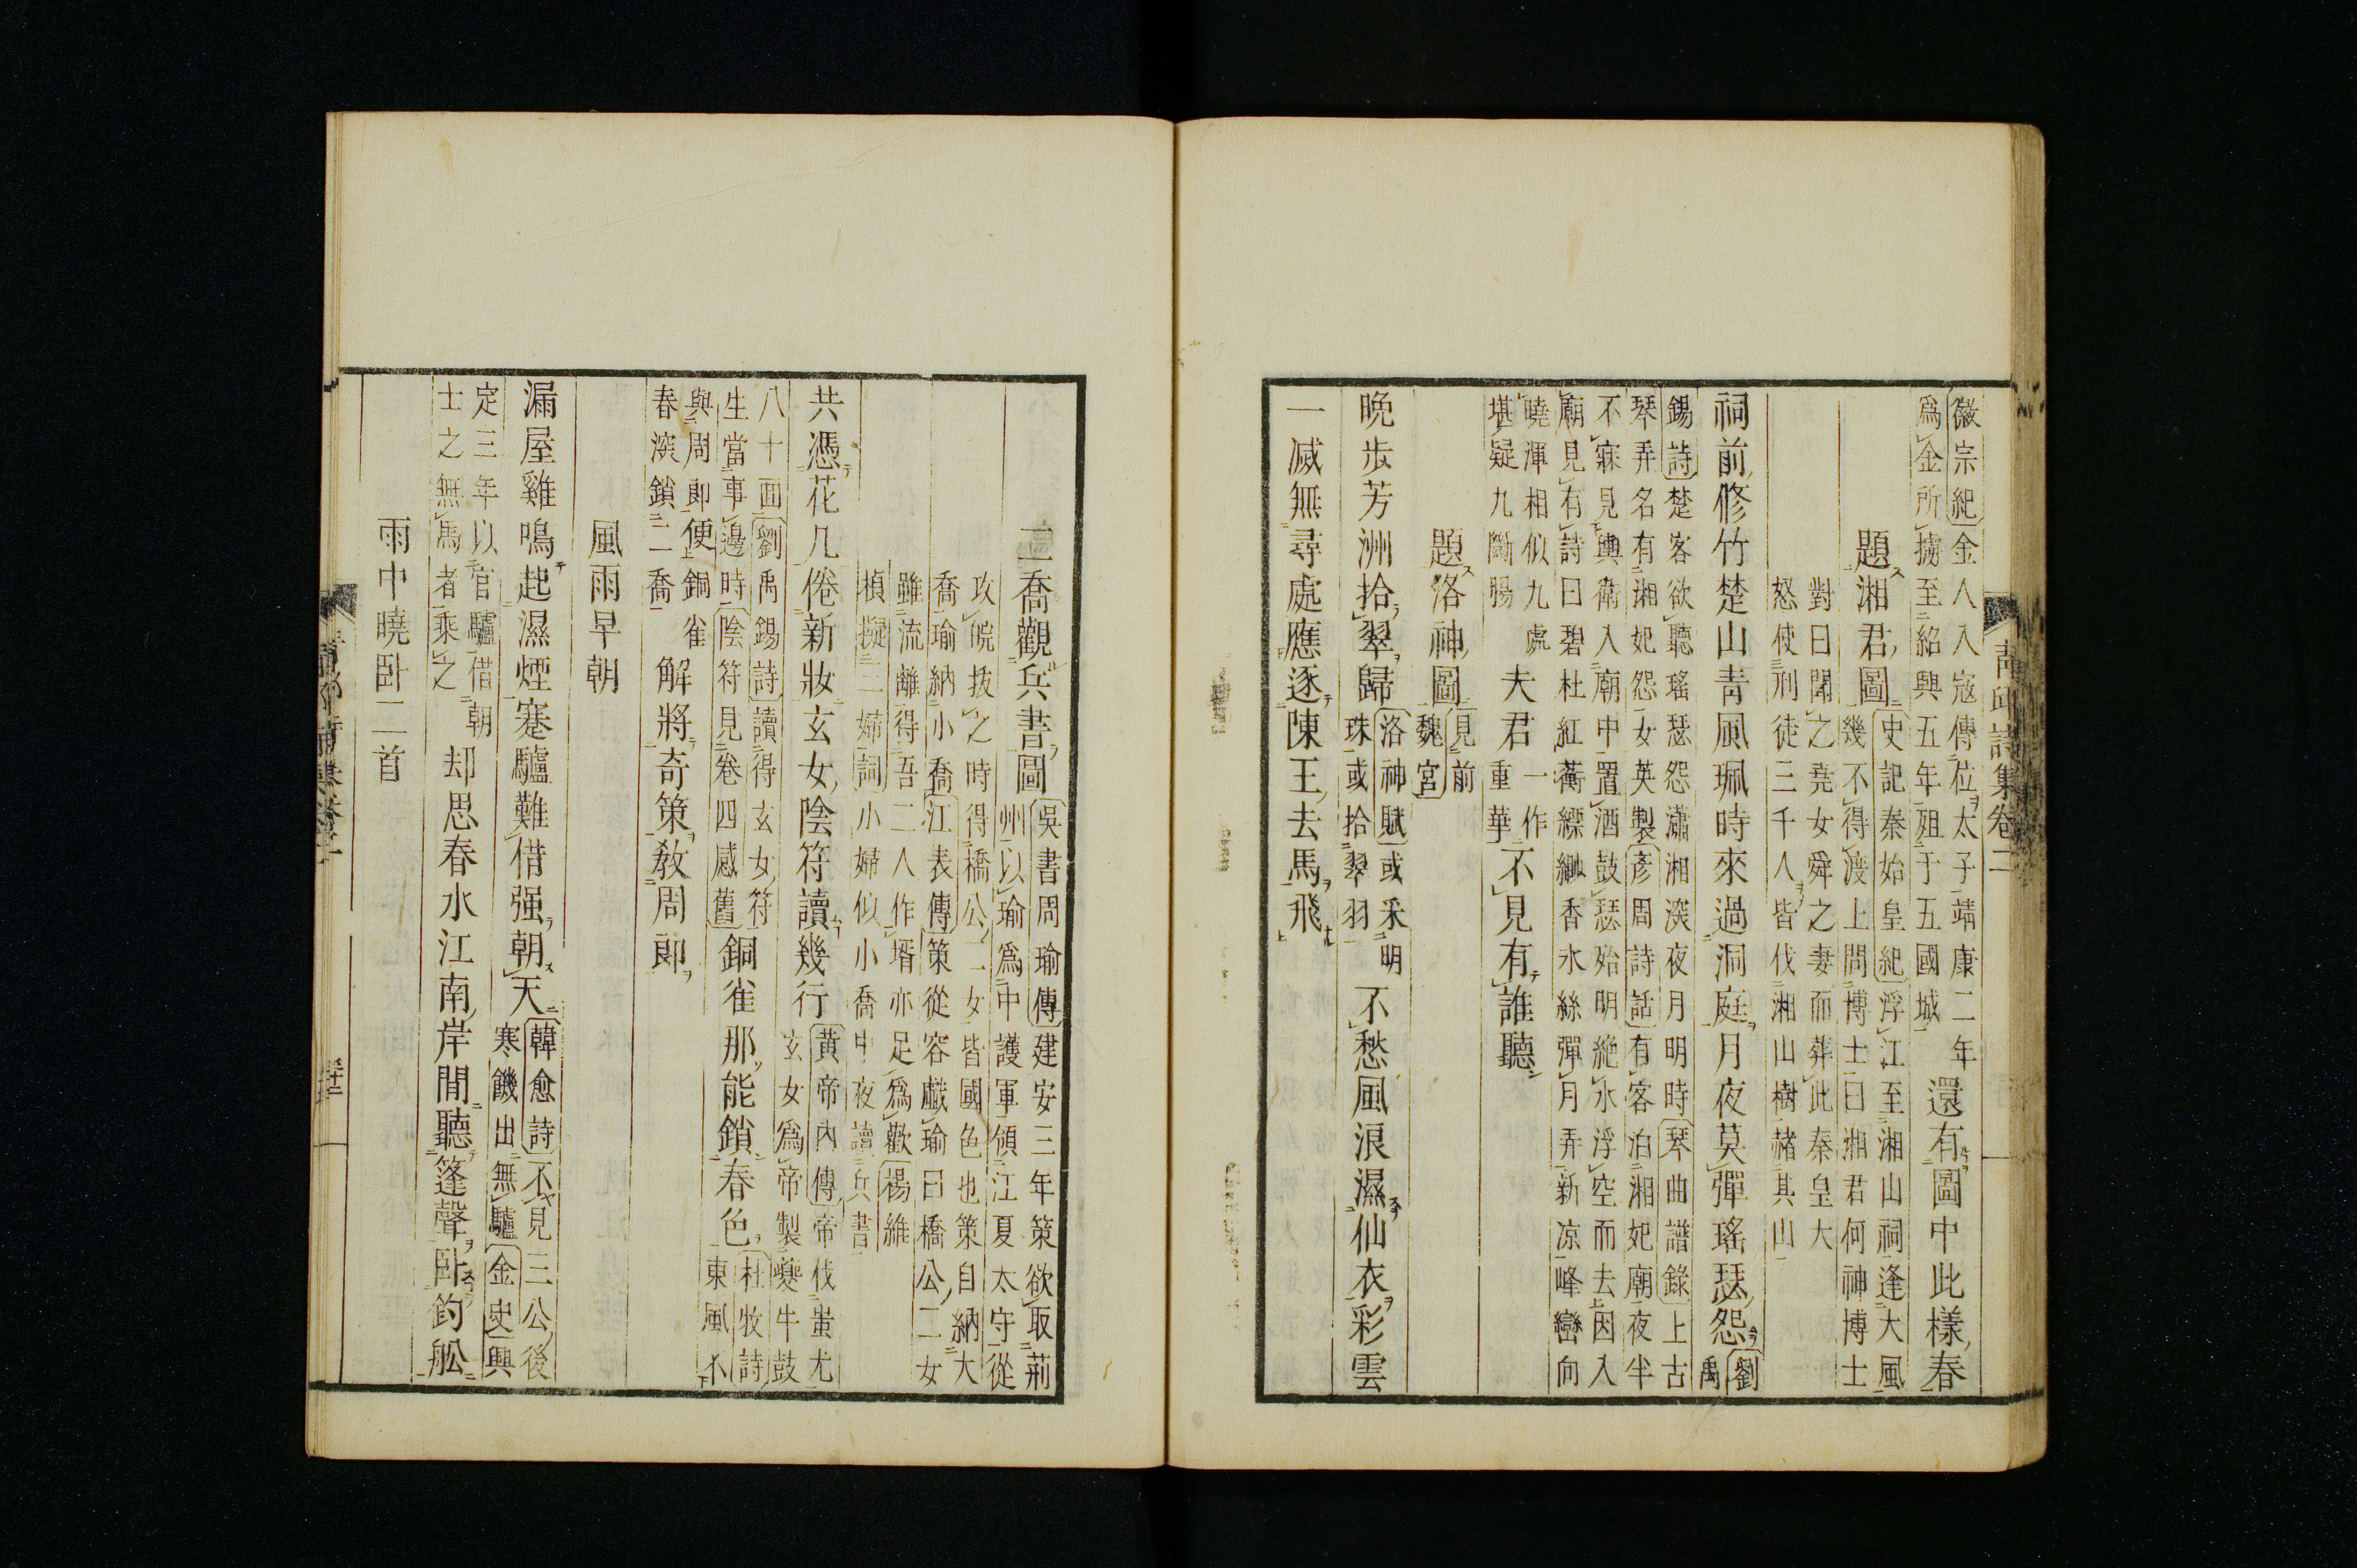 徽宗紀金人入寇傳位太子靖康二年
爲金所擄至紹興五年殂于五國城
還有圖中此樣春
題湘君圖
史記秦始皇紀浮江至湘山祠逢大風
幾不得渡上問博士曰湘君何神博士
對曰聞之堯女舜之妻而葬此秦皇大
怒使刑徒三千人皆伐湘山樹赭其山
祠前修竹楚山青風珮時來過洞庭月夜莫彈瑤瑟怨
劉
禹
錫詩楚客欲聽瑤瑟怨瀟湘深夜月明時琴曲譜錄上古
琴弄名有湘妃怨女英製彥周詩話有客泊湘妃廟夜半
不寐見輿衛入廟中置酒鼓瑟始明絶水浮空而去因入
廟見有詩曰碧杜紅蘅縹緲香水絲彈月弄新凉峰巒向
曉渾相似九處
堪疑九斷腸
夫君
一作
重華
不見有誰聽
題洛神圖
見前
魏宮
晩步芳洲拾翠歸
洛神賦或采明
珠或拾翠羽
不愁風浪濕仙衣彩雲
一滅無尋處應逐陳王去馬飛
青邱詩集卷二
二喬觀兵書圖
吳書周瑜傳建安三年策欲取荊
州以瑜爲中護軍領江夏太守從
攻皖拔之時得橋公二女皆國色也策自納大
喬瑜納小喬江表傳策從容戲瑜曰橋公二女
雖流離得吾二人作壻亦足爲歡楊維
楨擬二婦詞小婦似小喬中夜讀兵書
共憑花几倦新妝玄女陰符讀幾行
黃帝內傳帝伐蚩尤
玄女爲帝製夔牛鼓
八十面劉禹錫詩讀得玄女符
生當事邊時陰符見卷四感舊
銅雀那能鎖春色
杜牧詩
東風不
與周郎便銅雀
春深鎖二喬
解將奇策教周郎
風雨早朝
漏屋雞鳴起濕煙蹇驢難借强朝天
韓愈詩不見三公後
寒饑出無驢金史興
定三年以官驢借朝
士之無馬者乘之
却思春水江南岸閒聽篷聲臥釣舩
雨中曉卧二首